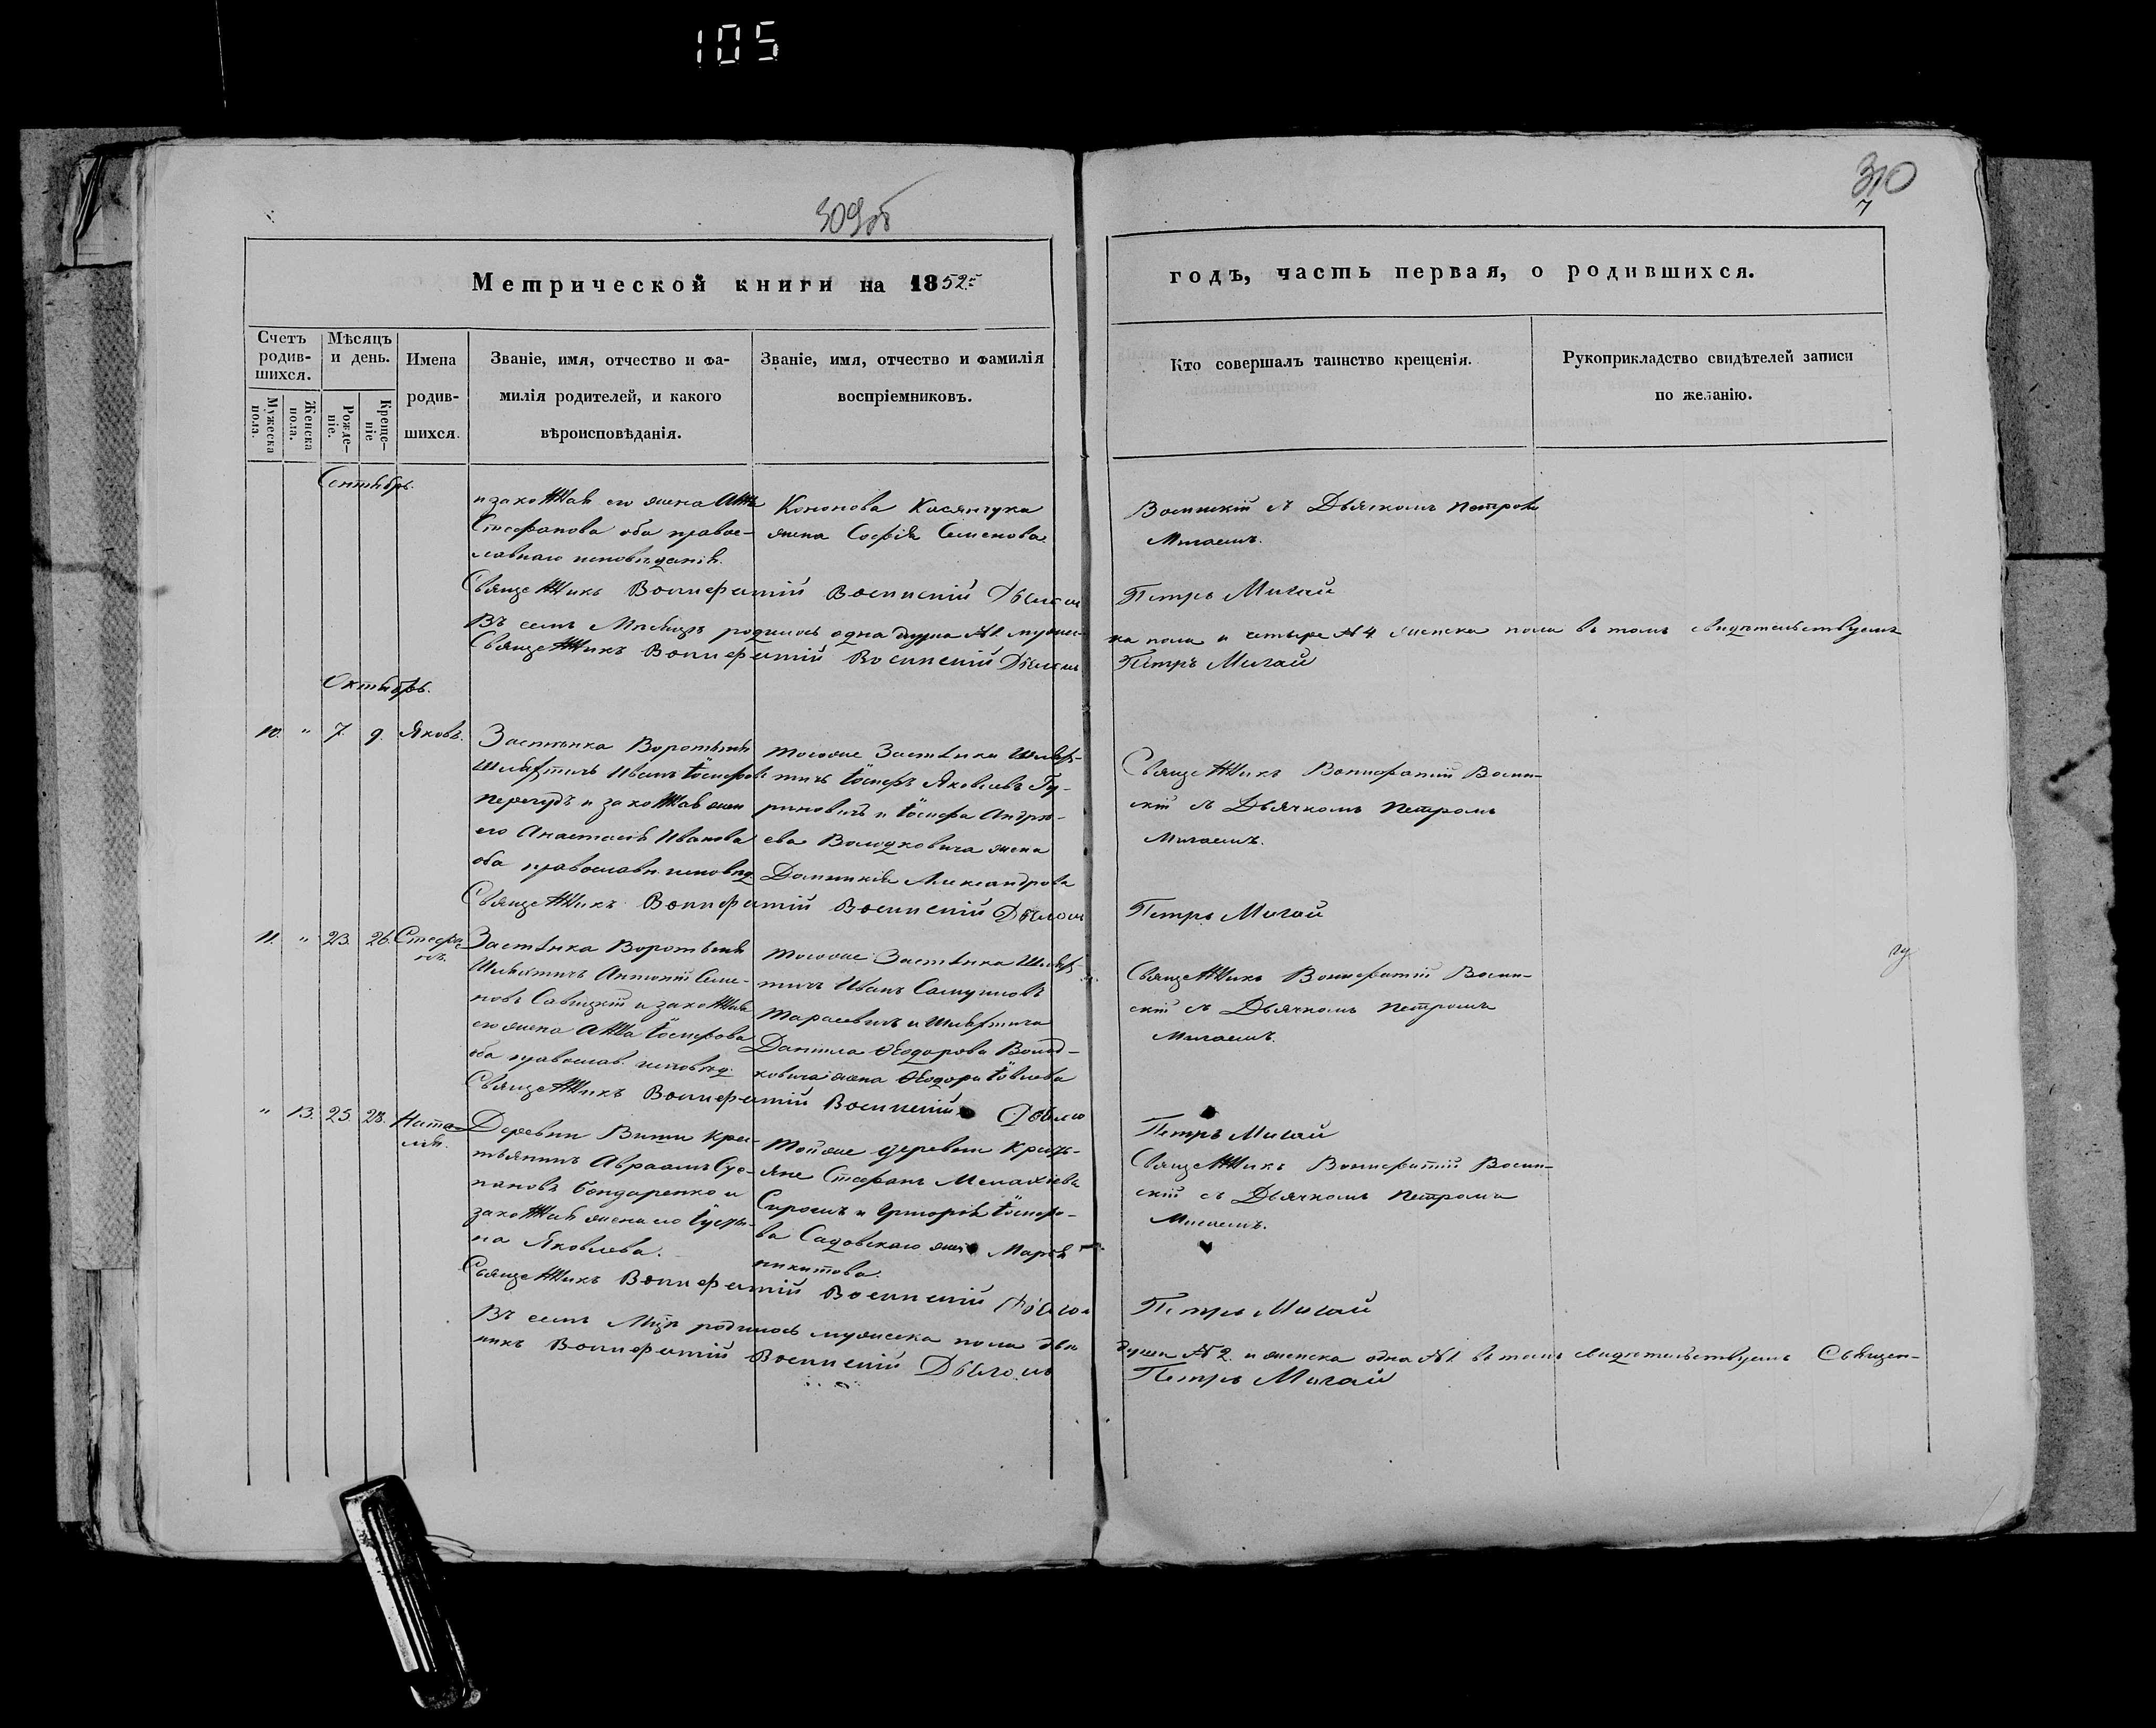 105
309об
310
7
Метрической книги на 1852:
годъ, часть первая, о родившихся.
Счетъ родив-шихся.
Мѣсяцъ и день.
Мужеска пола.
Женска пола.
Рожде-ніе.
Креще-ніе
Имена
родив-
шихся.
Званіе, имя, отчество и фа-
милія родителей, и какого
вѣроисповѣданія.
Званіе, имя, отчество и фамилія
воспріемниковъ.
Кто совершалъ таинство крещенія.
Рукоприкладство свидѣтелей записи
по желанію.
Сентябрь.
и законная его жена Анна
Стефанова оба правос-
лавнаго исповѣданія.
Кононова Касянчука
жена Софія Семенова.
Воинскій съ Дьячкомъ Петромъ
Мигаемъ.
Священникъ Вонифатій Воинскій Дьячокъ
Петръ Мигай
Въ семъ Мѣсяцѣ родилось одна душа №1 мужес-
ка пола и четыре №4 женска пола въ томъ свидѣтельствуемъ
Священникъ Вонифатій Воинскій Дьячокъ
Петръ Мигай
Октябрь.
10. " 7. 9. Яковъ.
Застѣнка Воротынь
Шляхтичъ Иванъ Іосифовъ
Перегудъ и законная жена
его Анастасія Иванова
оба православн. исповѣд.
тогоже Застѣнка Шлях-
тичъ Іосифъ Яковлевъ Гу-
риновичъ и Іосифа Андре-
ева Володковича жена
Домникія Александрова
Священникъ Вонифатій Воин-
скій съ Дьячкомъ Петромъ
Мигаемъ.
Священникъ Вонифатій Воинскій Дьячокъ
Петръ Мигай
11. " 23. 26. Стефа-
нъ.
Застѣнка Воротынь
Шляхтичъ Антоній Семе-
новъ Савицкій и законная
его жена Анна Іосифова
оба православ. исповѣд.
тогоже Застѣнка Шлях-
тичъ Иванъ Самуиловъ
Тарасевичъ и Шляхтича
Данила Ѳеодорова Волод-
ковича жена Ѳеодора Іовлева
Священникъ Вонифатій Воин-
скій съ Дьячкомъ Петромъ
Мигаемъ.
Священникъ Вонифатій Воинскій Дьячо
Петръ Мигай
" 13. 25. 28. Ната-
лія.
Деревни Вити крес-
тьянинъ Авраамъ
Бондаренко и
законная жена его
на Яковлева.
Тойже деревни кресть-
яне Стефанъ Малахіевъ
и Григорія Іосифо-
ва Садовскаго жена Марія
Никитова.
Священникъ Вонифатій Воин-
скій съ Дьячкомъ Петромъ
Мигаемъ.
Священникъ Вонифатій Воинскій Дьячокъ
Петръ Мигай
Въ семъ Мцѣ родилось мужеска пола двѣ
души №2. и женска одна №1 въ томъ свидѣтельствуемъ Священ-
никъ Вонифатій Воинскій Дьячокъ
Петръ Мигай